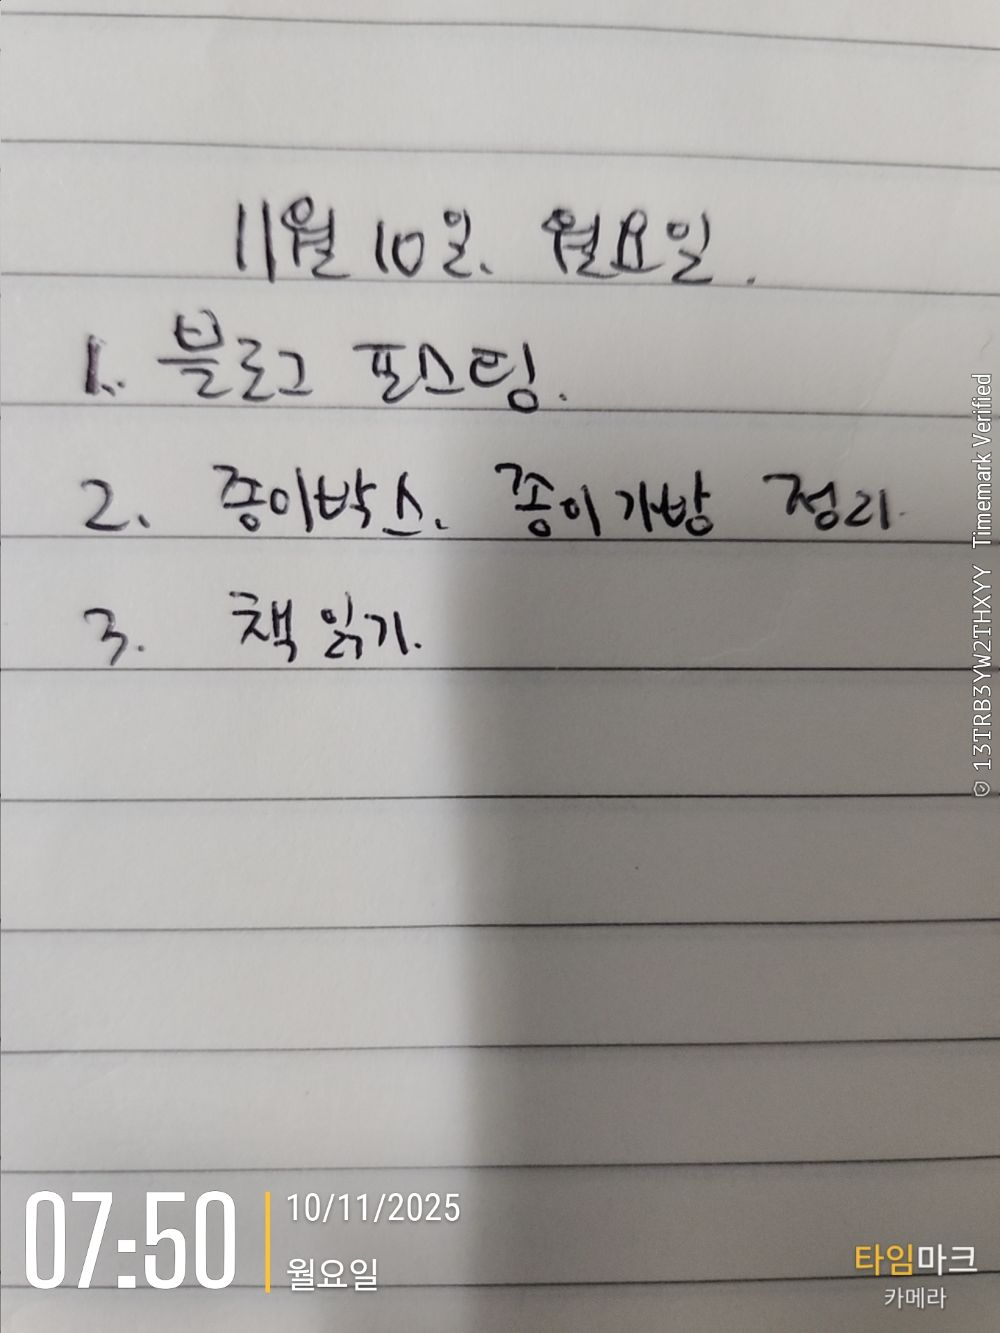 11월 10일. 월요일.
1. 블로그 포스팅.
2. 종이박스. 종이가방 정리.
3. 책 읽기.
13TRB3YW2THXYY Timemark Verified
07:50
10/11/2025
월요일
타임마크
카메라